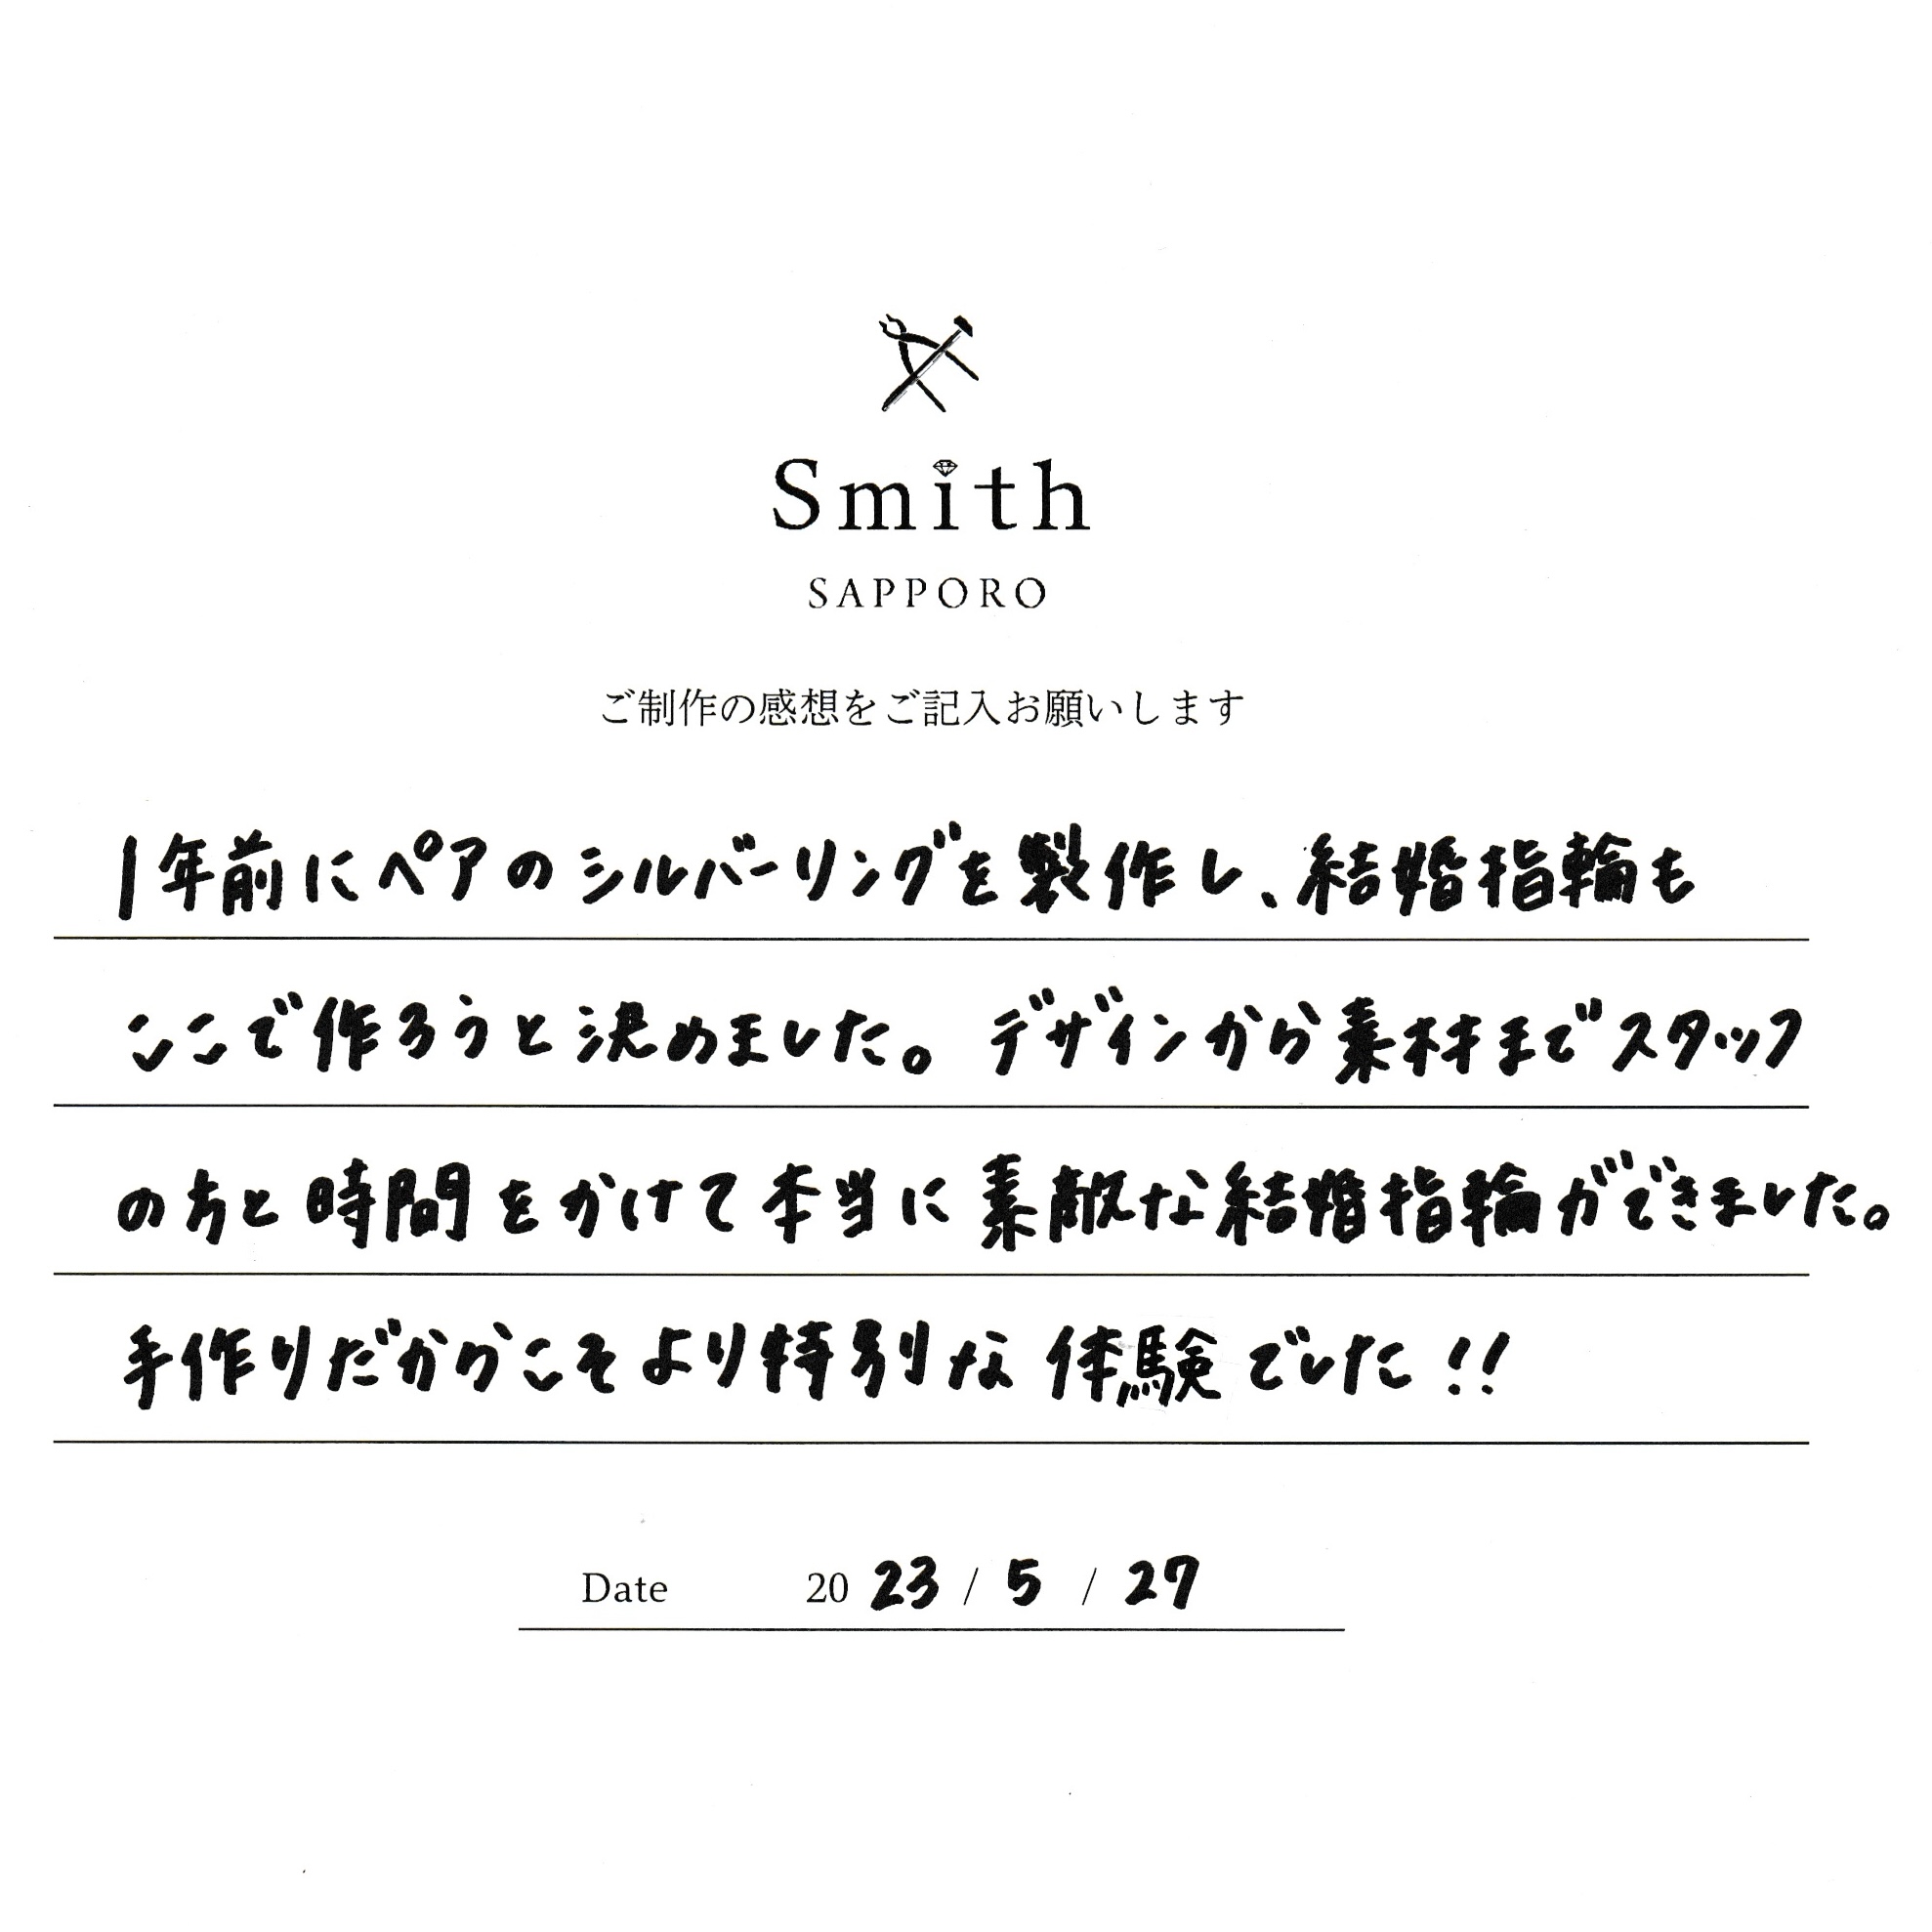 Smith
SAPPORO
ご制作の感想をご記入お願いします
1年前にペアのシルバーリングを製作し、結婚指輪も
ここで作ろうと決めました。デザインから素材までスタッフ
の方と時間をかけて本当に素敵な結婚指輪ができました。
手作りだからこそより特別な体験でした!!
Date 2023 / 5 / 27